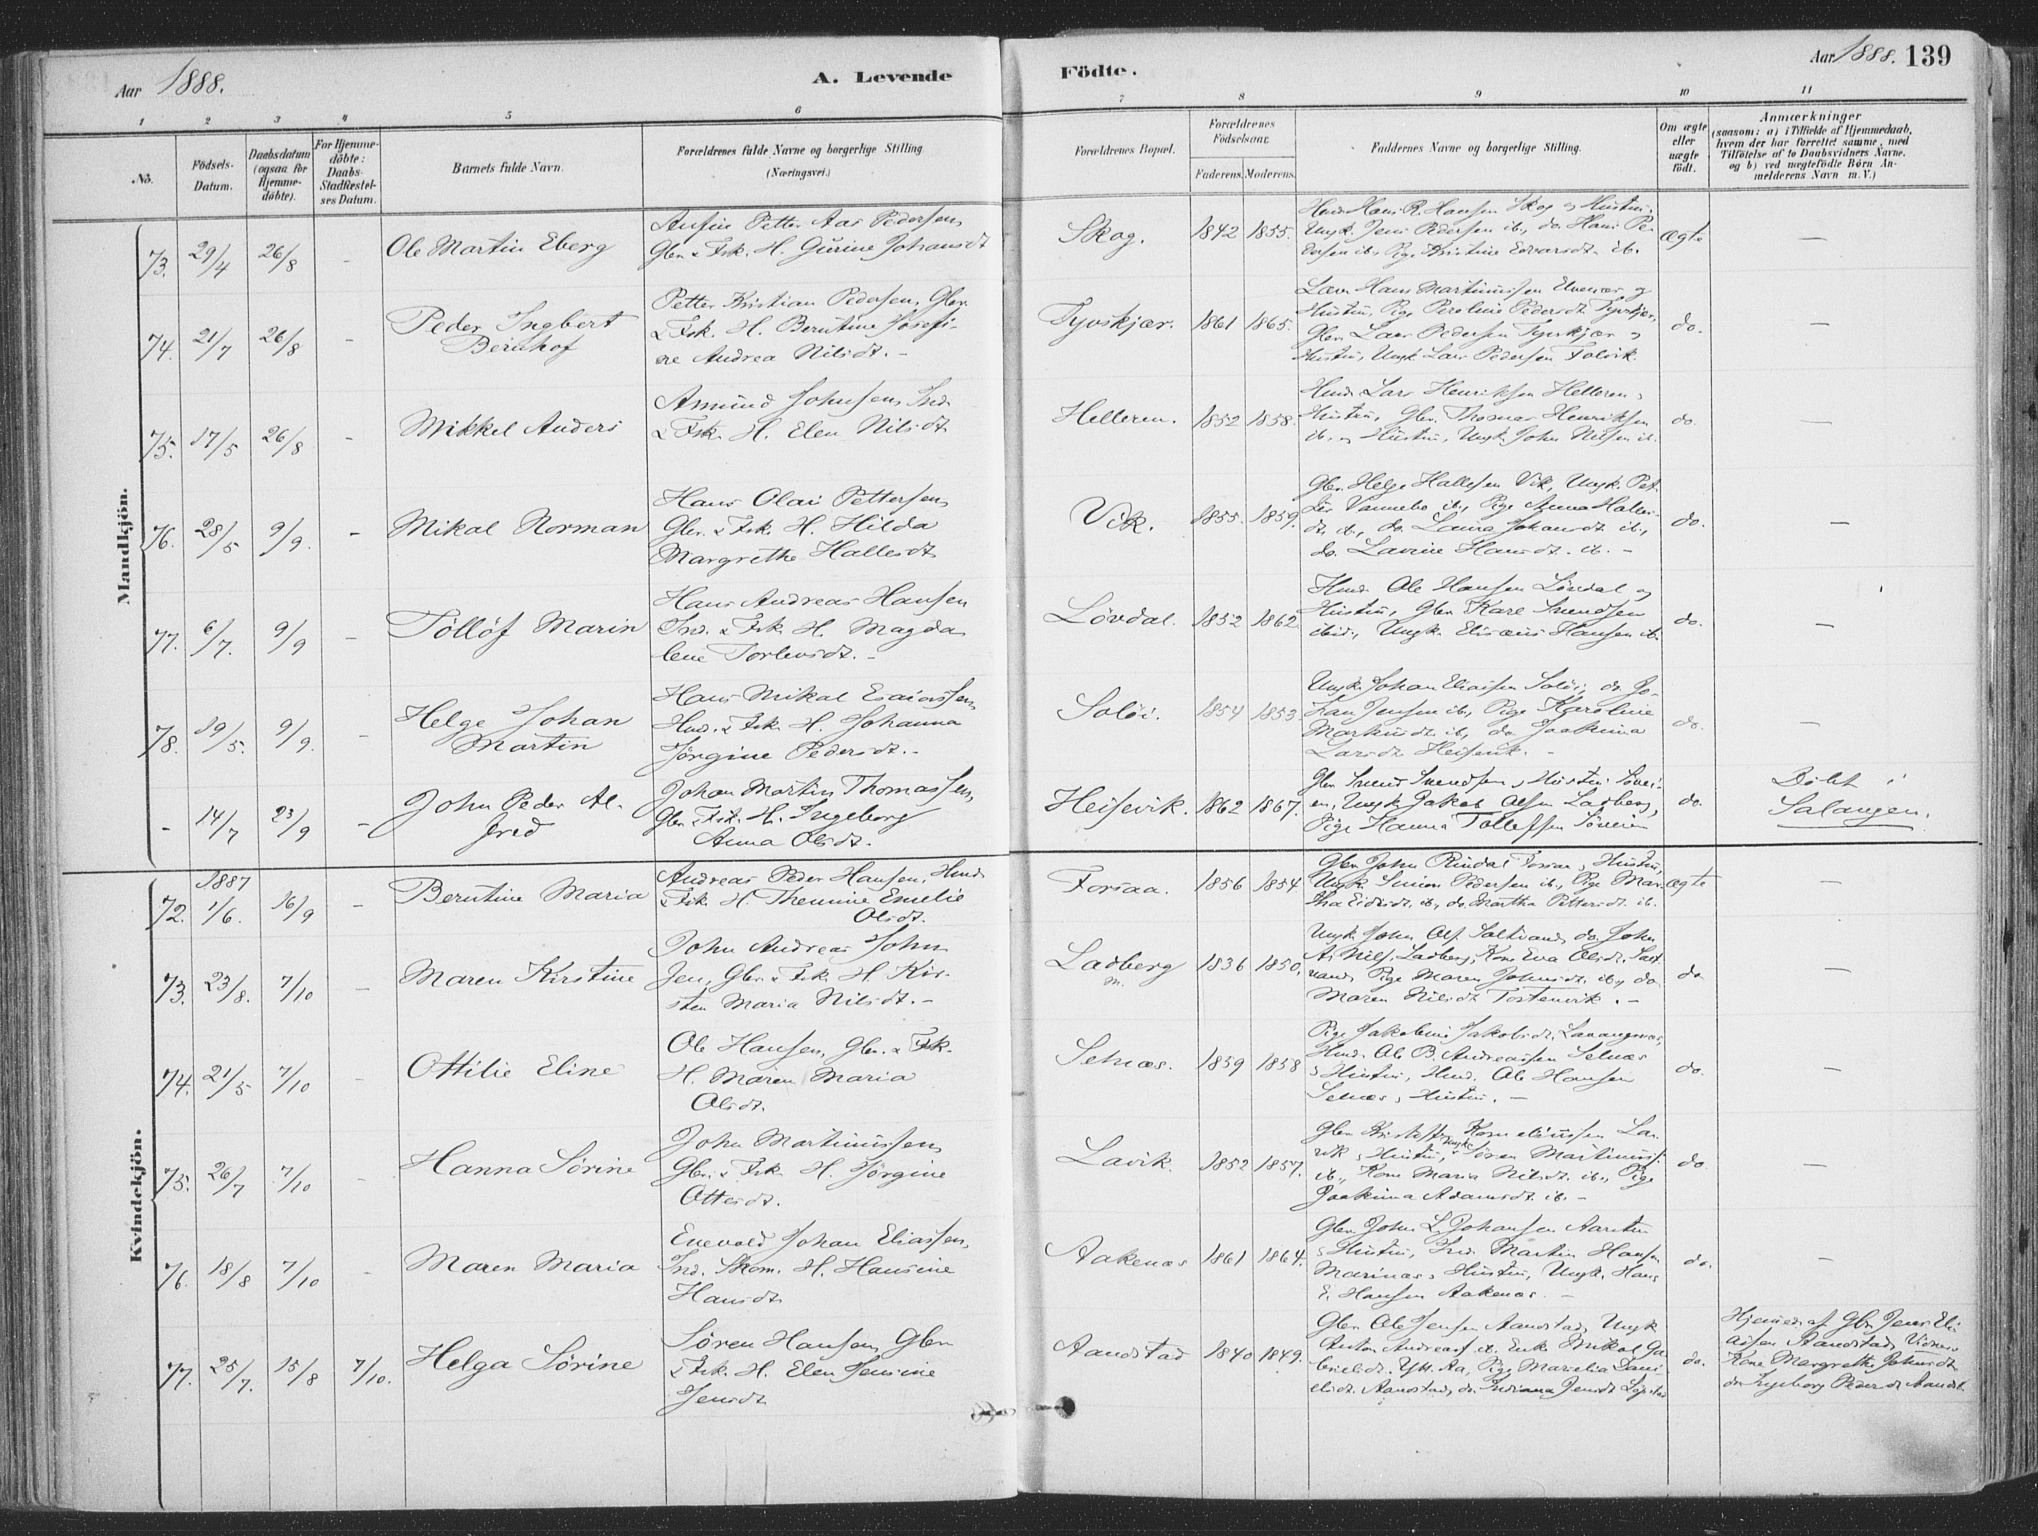 Aar 1888.
A. Levende
Födte.
Aar 1888. 139
1 2 3 4 5 6 7 8 9 10 11
No.
Födsels-
Datum.
Daabsdatum
(ogsaa for
Hjemme-
döbte).
For Hjemme-
döbte:
Daabs-
Stadfæstel-
ses Datum.
Barnets fulde Navn.
Forældrenes fulde Navne og borgerlige Stilling
(Næringsvei.)
Forældrenes Bopæl.
Forældrenes
Födselsaar.
Faderens. Moderens.
Faddernes Navne og borgerlige Stilling.
Om ægte
eller
uægte
födt.
Anmærkninger
(saasom: a) i Tilfælde af Hjemmedaab,
hvem der har forrettet samme, med
Tilföielse af to Daabsvidners Navne.
og b) ved uægtefödte Börn An-
melderens Navn m. V.)
Mandkjön.
73. 29/4 26/8 - Ole Martin Eberg
Petter Aas Pedersen,
Gbr. & Fsk. H. Gurine Johansdt
Skog. 1842 1855.
Hmd. Hans R. Hansen Skog og Hustru,
Ungk. Jens Pedersen ib, do. Hans Pe-
dersen ib, Pige Kristine Edvardsdt. ib.
ægte —
74. 21/7 26/8 - Peder Ingbert
Bernhof
Petter Kristian Pedersen, Gbr.
& Fsk. H. Berntine Josefi-
ne Andrea Nilsdt. -
Tyvskjær. 1861 1865.
Lars Hans Martinussen
Hustru, Pige Peroline Pedersdt Tyvskjær,
Gbr. Lars Pedersen Tyvskjær &
Hustru, Ungk Lars Pedersen
do. —
75. 17/5 26/8 - Mikkel Anders
Amund Johnsen, Ind.
& Fsk. H. Elen Nilsdt
Helleren. 1852 1858.
Hmd. Lars Henriksen Helleren,
Hustru, Gbr. Thomas Henriksen
ib, & Hustru, Ungk. John Nilsen ib.
do. —
76. 28/5 9/9. - Mikal Norman
Hans Olai Pettersen,
Gbr. & Fsk. H. Hilda
Margrethe Hallesdt
Vik. 1855. 1859.
Gbr. Helge Hallesen Vik, Ungk. Pet-
ter Vannebo ib, Pige Anna Halles-
dt. ib, do. Laura Johansdt ib,
do. Lavine Hansdt. ib. -
do. —
77. 6/7. 9/9 - Tollöf Marin
Hans Andreas Hansen
Ind. & Fsk. H. Magda
lene Torlevsdt. -
Lövdal. 1852 1862
Hmd. Ole Hansen Lövdal og
Hustru, Gbr. Kare Svendsen
ibid., Ungk. Elisæus Hansen ib.
do. —
78. 19/5. 9/9. - Helge Johan
Martin
Hans Mikal Esaiassen,
Hmd. & Fsk. H. Johanna
Jörgine Pedersdt. -
Solöi. 1854 1853.
Ungk. Johan Eliassen Solöi, do. Jo-
han Jensen ib, Pige Karoline
Markusdt ib, do Joakima
Larsdt -
do. —
- 14/7 23/9 - John Peder Al-
fred
Johan Martin Thomassen,
Gbr. & Fsk. H. Ingeborg
Anna Olsdt.
Heisevik. 1862 1867.
Gbr. Svend Svendsen & Hustru
Ungk Jakob Olsen Ladberg,
Pige Hanna Tollefsen
do. Döbt i
Salangen.
Kvindekjön.
72. 1887
1/6. 16/9 - Berntine Maria
Andreas Peder Hansen, Hmd
& Fsk. H. Themine Emelie
Olsdt.
Forsaa. 1856 1854
Gbr. John Rindal Forsaa, Hustru,
Ungk. Simon Pedersen ib, Pige Mar-
tha Eidisdt. ib, do. Martha Pettersdt. ib.
ægte —
73. 23/8. 7/10 - Maren Kirstine
John Andreas John
sen, Gbr. & Fsk. H. Kir-
sten Maria Nilsdt. -
Ladberg 1836 1850.
Ungk John Ols. do. John
A. Nils. Ladberg, Kone Eva Olsdt.
Pige Maren Johnsdt. ib, do
Maren Nilsdt -
do. —
74. 21/5 7/10 - Ottilie Eline
Ole Hansen, Gbr. & Fsk.
H. Maren Maria
Olsdt.
Selnæs. 1859 1858
Pige Jakobine Jakobsdt, Lavangsnæs,
Hmd. Ole B. Andreassen Selnæs
& Hustru, Hmd. Ole Hansen
Selnæs, Hustru. -
do. —
75. 26/7 7/10 - Hanna Sörine
John Martinussen,
Gbr. & Fsk. H. Jörgine
Ottesdt.
Lavik. 1852 1857.
Gbr. Kristoffer Korneliussen La-
vik, Hustru, Ungk. Sören Martinuss.
ib., Kone Maria Nilsdt. ib., Pige
Joakima Adamsdt ib. -
do. —
76. 18/8 7/10 - Maren Maria
Enevold Johan Eliassen,
Ind. Skom. H. Hansine
Hansdt
Aakenæs 1861 1864.
Gbr. John L. Johansen
& Hustru, Ind. Martin Hansen
& Hustru, Ungk. Hans
E. Hansen Aakenæs. -
do. —
77. 25/7. 15/8 7/10. Helga Sörine
Sören Hansen, Gbr
& Fsk. H. Elen Jensine
Jensdt
Aandstad 1840 1849.
Gbr. Ole Jensen Aandstad, Ungk
Anton Andreas. ib. Enke Mikal Ga-
brielsdt. Ytt. Aa, Pige Marelia Dani-
elsdt. Aandstad, do. Indiana Jensdt
do.
Hjemmed. af Gbr. Jens Eli-
assen Aandstad, Vidner
Kone Margrethe Johnsdt
do Ingeborg Pedersdt Aandst.